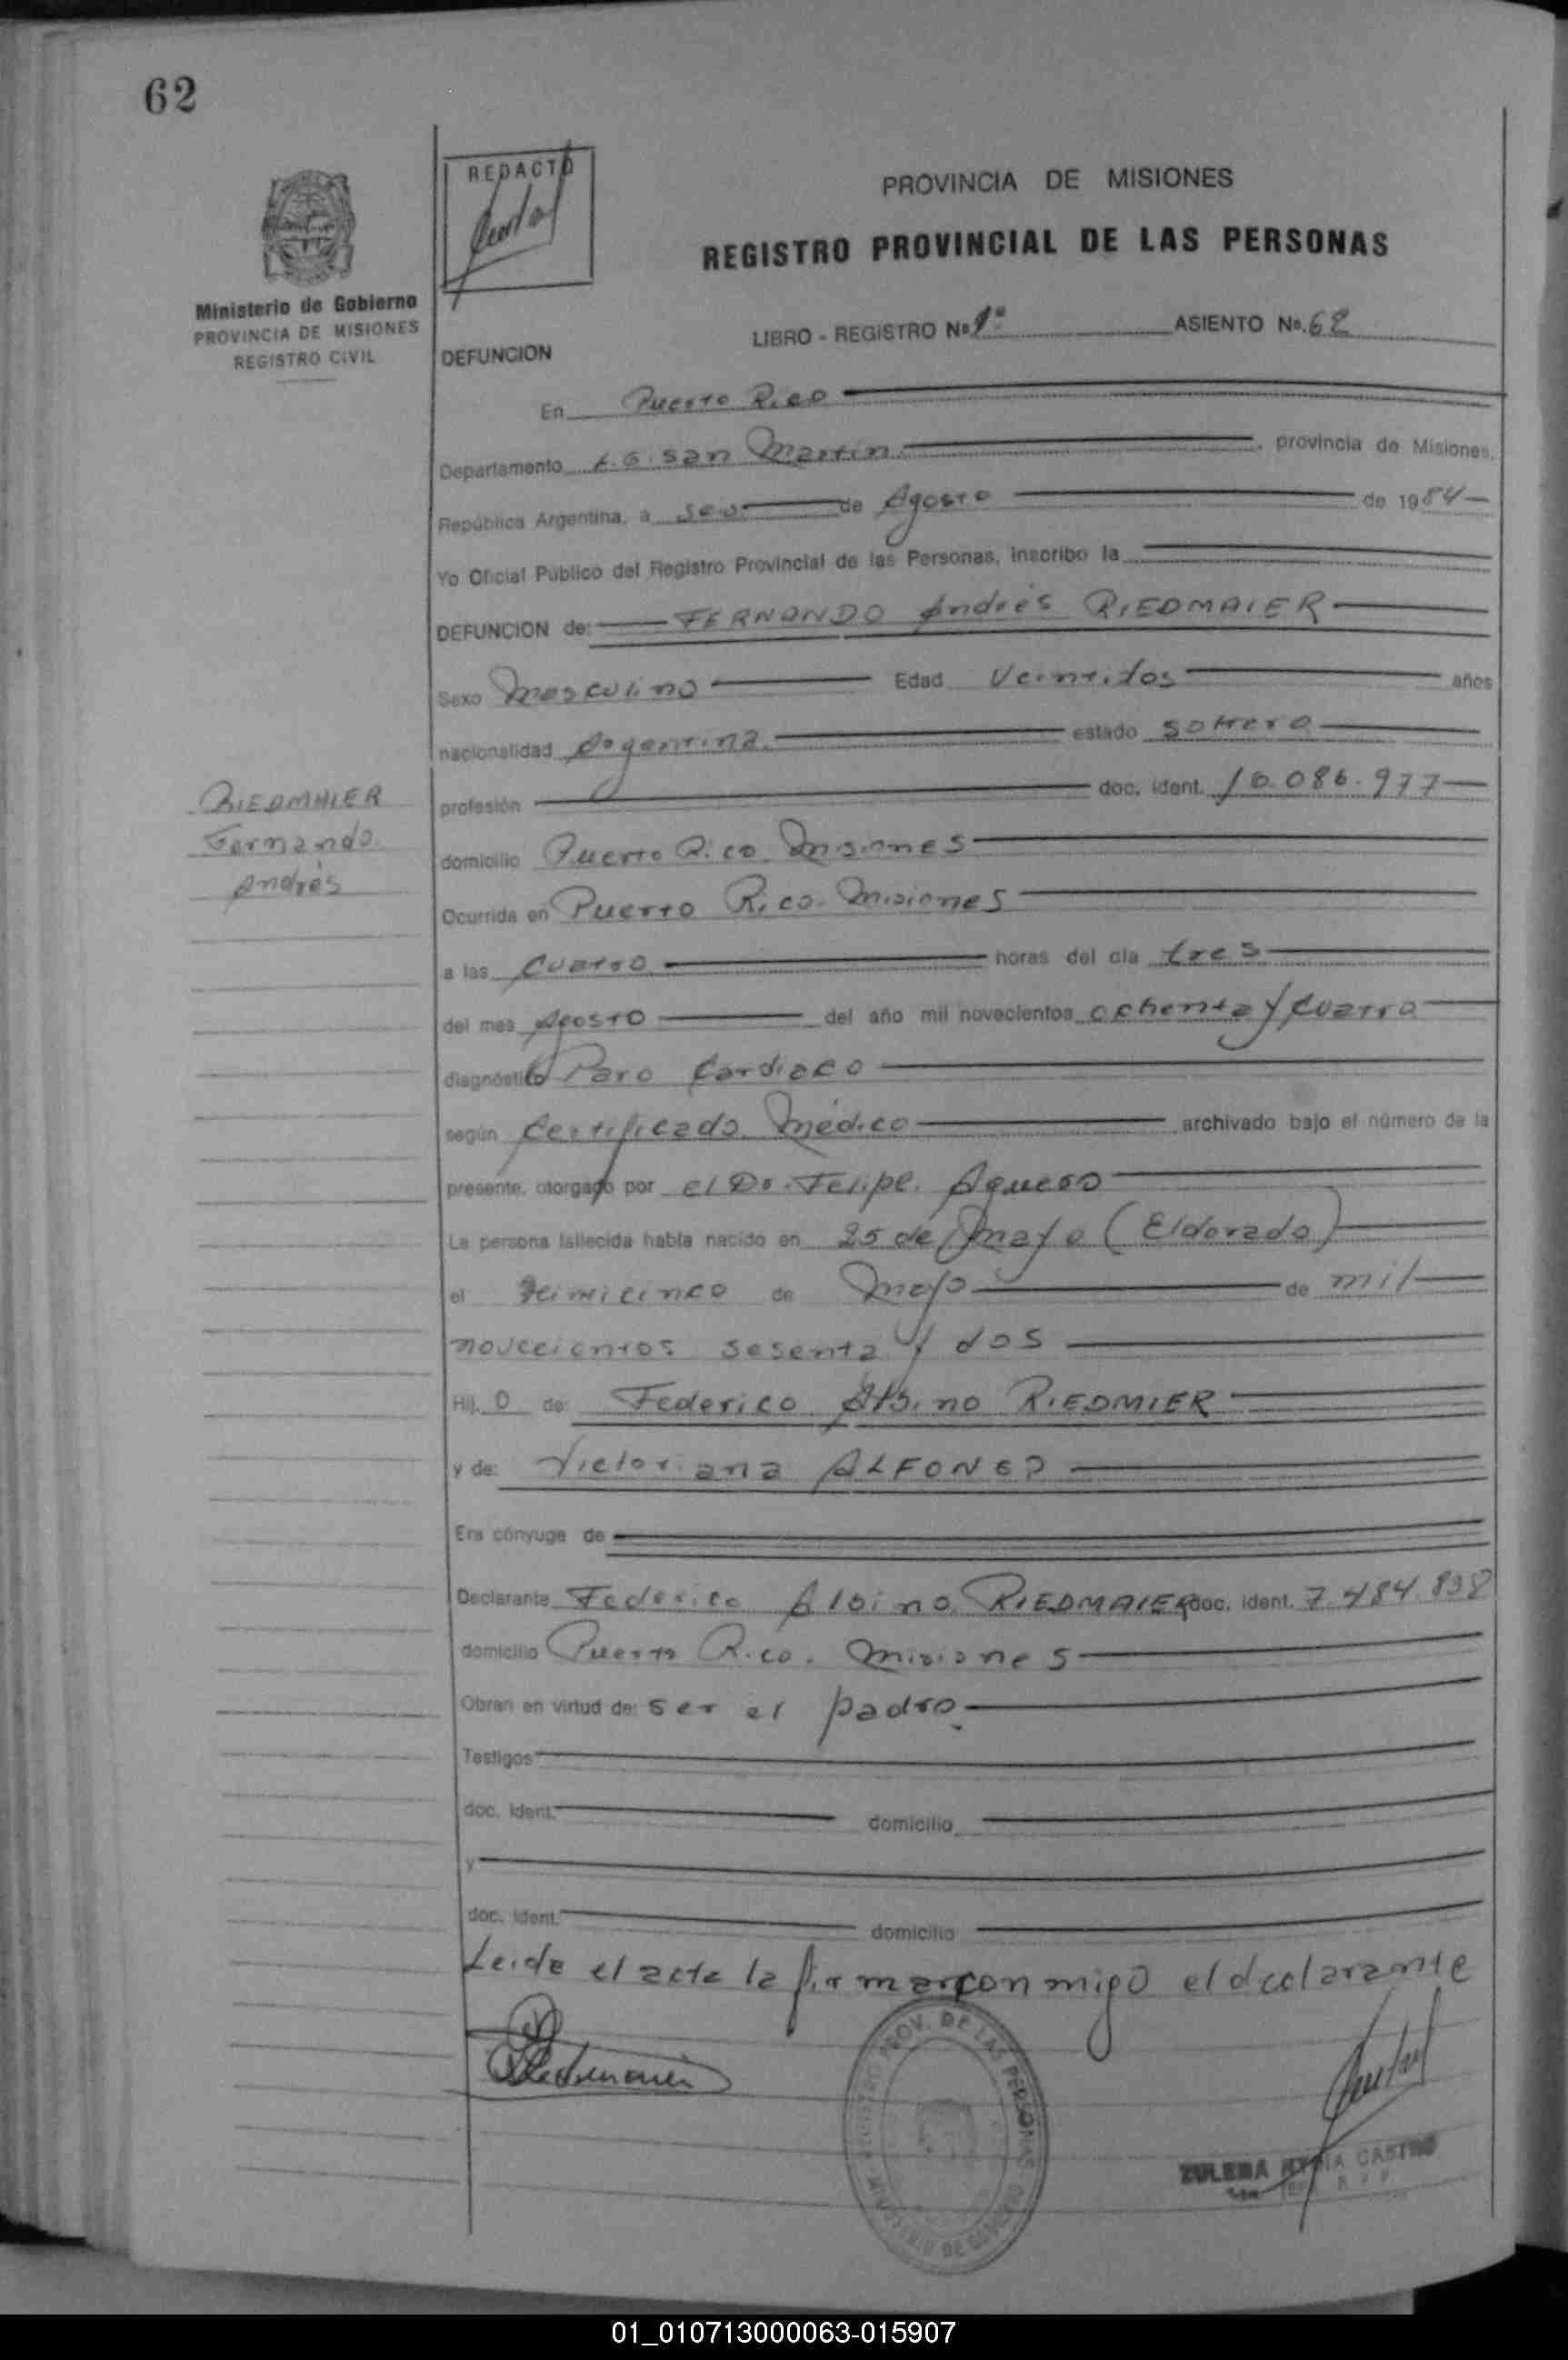 62
REDACTÓ
PROVINCIA DE MISIONES
REGISTRO PROVINCIAL DE LAS PERSONAS
Ministerio de Gobierno
PROVINCIA DE MISIONES
REGISTRO CIVIL
LIBRO - REGISTRO No. 1° ASIENTO No. 62
DEFUNCION
En Puerto Rico
Departamento L.G. San Martin , provincia de Misiones,
República Argentina, a seis de Agosto de 1984
Yo Oficial Público del Registro Provincial de las Personas, inscribo la
DEFUNCION de: FERNANDO Andrés RIEDMAIER
Sexo Masculino Edad Veintidos años
nacionalidad Argentina estado soltero
RIEDMAIER
Fernando
Andrés
profesión doc. ident. 16.086.977
domicilio Puerto Rico Misiones
Ocurrida en Puerto Rico. Misiones
a las Cuatro horas del día tres
del mes Agosto del año mil novecientos ochenta y cuatro
diagnóstico Paro Cardiaco
según Certificado Médico archivado bajo el número de la
presente, otorgado por el Dr. Felipe. Aguero
La persona fallecida había nacido en 25 de Mayo (Eldorado)
el de Mayo de mil
novecientos sesenta y dos
Hij. O de: Federico Albino RIEDMIER
y de: Victoriana
Era cónyuge de
Declarante Federico Albino RIEDMAIER doc. ident. 7.484.898
domicilio Puerto Rico. Misiones
Obran en virtud de: ser el padre
Testigos
doc. ident. domicilio
y
doc. ident. domicilio
Leida el acta la firma conmigo el declarante
REGISTRO PROV. DE LAS PERSONAS
MINISTERIO DE GOBIERNO
ZULEMA CASTRO
01_010713000063-015907